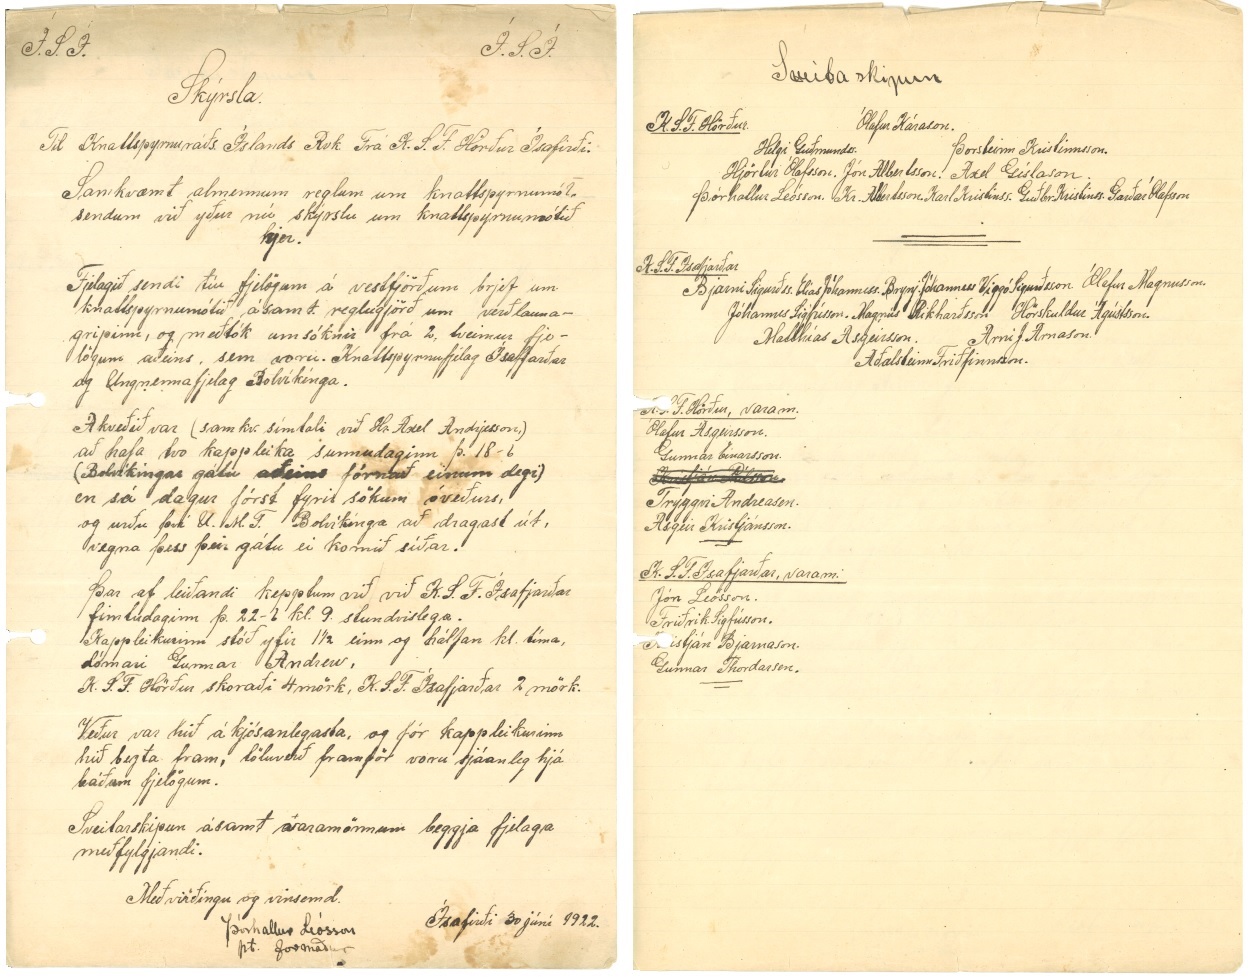 Í.S.Í. Í.S.Í.
Skýrsla.
Til Knattspyrnuráðs Íslands Rvk Frá K.S.F. Hörður Ísafirði.
Samkvæmt almennum reglum um knattspyrnumót
sendum við yður nú skýrslu um knattspyrnumótið
hjer.
Fjelagið sendi tíu fjelögum á vestfjörðum brjef um
knattspyrnumótið ásamt reglugjörð um verðlauna-
gripinn, og meðtók umsóknir frá 2, tveimur fje-
lögum aðeins, sem voru. Knattspyrnufjelag Ísafjarðar
og Ungmennafjelag Bolvíkinga.
Akveðið var (samkv. símtali við Hr. Axel Andrjesson,)
að hafa tvo kappleika sunnudaginn þ. 18-6
(Bolvíkingar gátu aðeins fórnað einum degi)
en sá dagur fórst fyrir sökum óveðurs,
og urðu því U.M.F. Bolvíkinga að dragast út,
vegna þess þeir gátu ei komið síðar.
Þar af leiðandi kepptum við við K.S.F. Ísafjarðar
fimtudaginn þ. 22-6 kl. 9. stundvislega.
Kappleikurinn stóð yfir 1½ einn og hálfan kl. tíma,
dómari Gunnar Andrew,
K.S.F. Hörður skoraði 4 mörk, K.S.F. Ísafjarðar 2 mörk.
Veður var hið ákjósanlegasta, og fór kappleikurinn
hið bezta fram, töluverð framför voru sjáanleg hjá
báðum fjelögum.
Sveitarskipun ásamt varamönnum beggja fjelaga
meðfylgjandi.
Með virðingu og vinsemd.
Þórhallur Leósson
pt. formaður
Ísafirði 30 júní 1922.
Sveitaskipun
K.S.F. Hörður. Ólafur Kárason.
Helgi Guðmundss. Þorsteinn Kristinnsson.
Hjörtur Ólafsson. Jón Albertsson. Axel Gíslason.
Þórhallur Leósson. Kr. Albertsson. Karl Kristinss. Guðbr. Kristinss. Garðar Ólafsson
K.S.F. Ísafjarðar
Bjarni Sigurðss. Elías Jóhanness. Brynj. Jóhanness Viggó Sigurðsson Ólafur Magnusson.
Jóhannes Sigfússon. Magnús Rikharðsson Höskuldur Ágústsson.
Matthías Asgeirsson. Arni J Arnason.
Aðalsteinn Friðfinnsson.
K.S.F. Hörður, varam.
Ólafur Asgeirsson.
Gunnar Einarsson.
Tryggvi Andreasen.
Asgeir Kristjánsson.
K.S.F. Ísafjarðar, varam.
Jón Leósson.
Friðrik Sigfússon.
Kristján Bjarnason.
Gunnar Thordarsen.